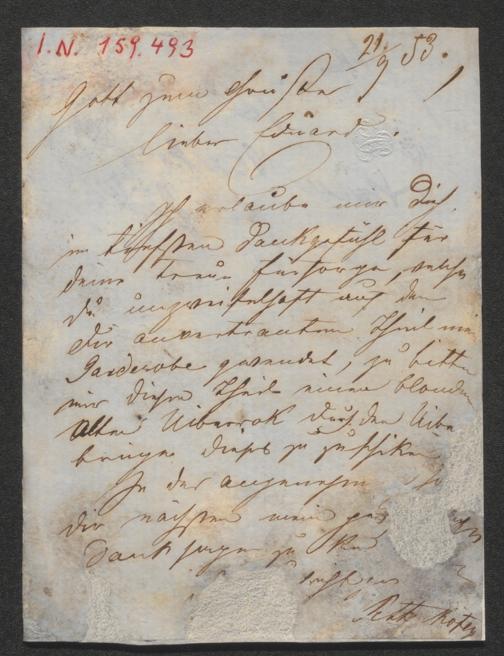 I.N. 159.493
21/9 53.
Gott zum Gruße
lieber Eduard.
Ich erlaube mir Dich,
im tiefsten Dankgefühl für
deine treue Fürsorge, welche
du unzweifelhaft auf den
Dir anvertrauten Theil
Garderobe gewendet, zu bitten
mir diesen Theil einen blonden
alten Uiberrok durch den Uiber
bringer dieß zu zuschiken
In der angenehmen
dir nächstens mein
Dank sagen zu